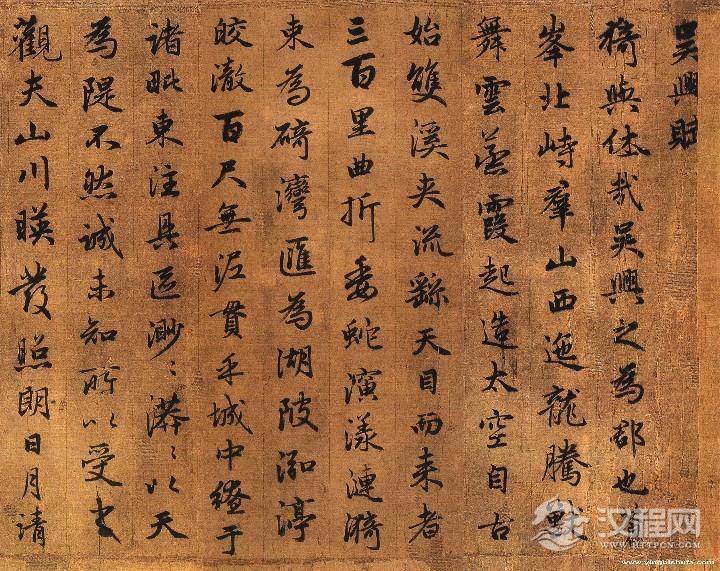 吳興賦
猗與休哉吳興之為郡也蒼
峯北峙羣山西迤龍騰獸
舞雲蒸霞起造太空自古
始雙溪夾流繇天目而來者
三百里曲折委蛇演漾漣漪
束為碕灣匯為湖陂泓渟
皎澈百尺無泥貫乎城中繚于
諸毗東注具區渺〻漭〻以天
為隄不然誠未知所以受之
觀夫山川暎發照朗日月清
汉程网
HTTPCN.COM
www.yingbishufa.com